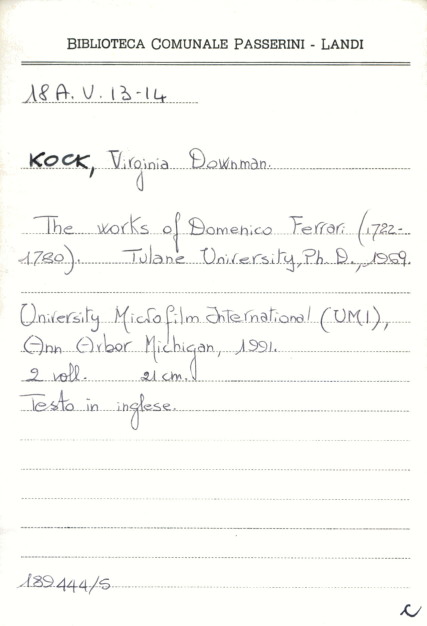 BIBLIOTECA COMUNALE PASSERINI - LANDI
18 A. V. 13-14
KOCK, Virginia Downman.
The works of Domenico Ferrari (1722-
1780). Tulane University, Ph. D., 1969.
University Microfilm International (UMI),
Ann Arbor Michigan, 1991.
2 voll. 21 cm.
Testo in inglese.
189444/5
c